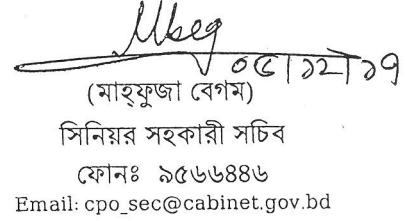 ০৫।১২।১৭
(মাহ্‌ফুজা বেগম)
সিনিয়র সহকারী সচিব
ফোনঃ ৯৫৬৬৪৪৬
Email: cpo_sec@cabinet.gov.bd